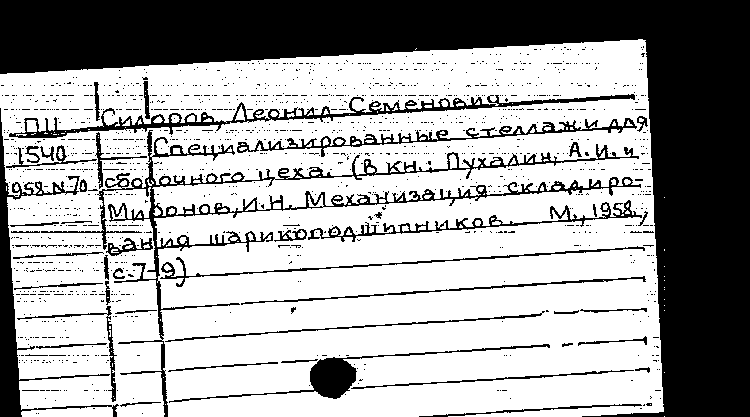 ПЦ Сидоров, Леонид Семенович.
1540 Специализированные стеллажи для
958 N 70 сборочного цеха. (В кн.: Пухалин, А.И. и
Миронов, И.Н. Механизация складиро-
вания шарикоподшипников. М., 1958.,
с. 7-9).